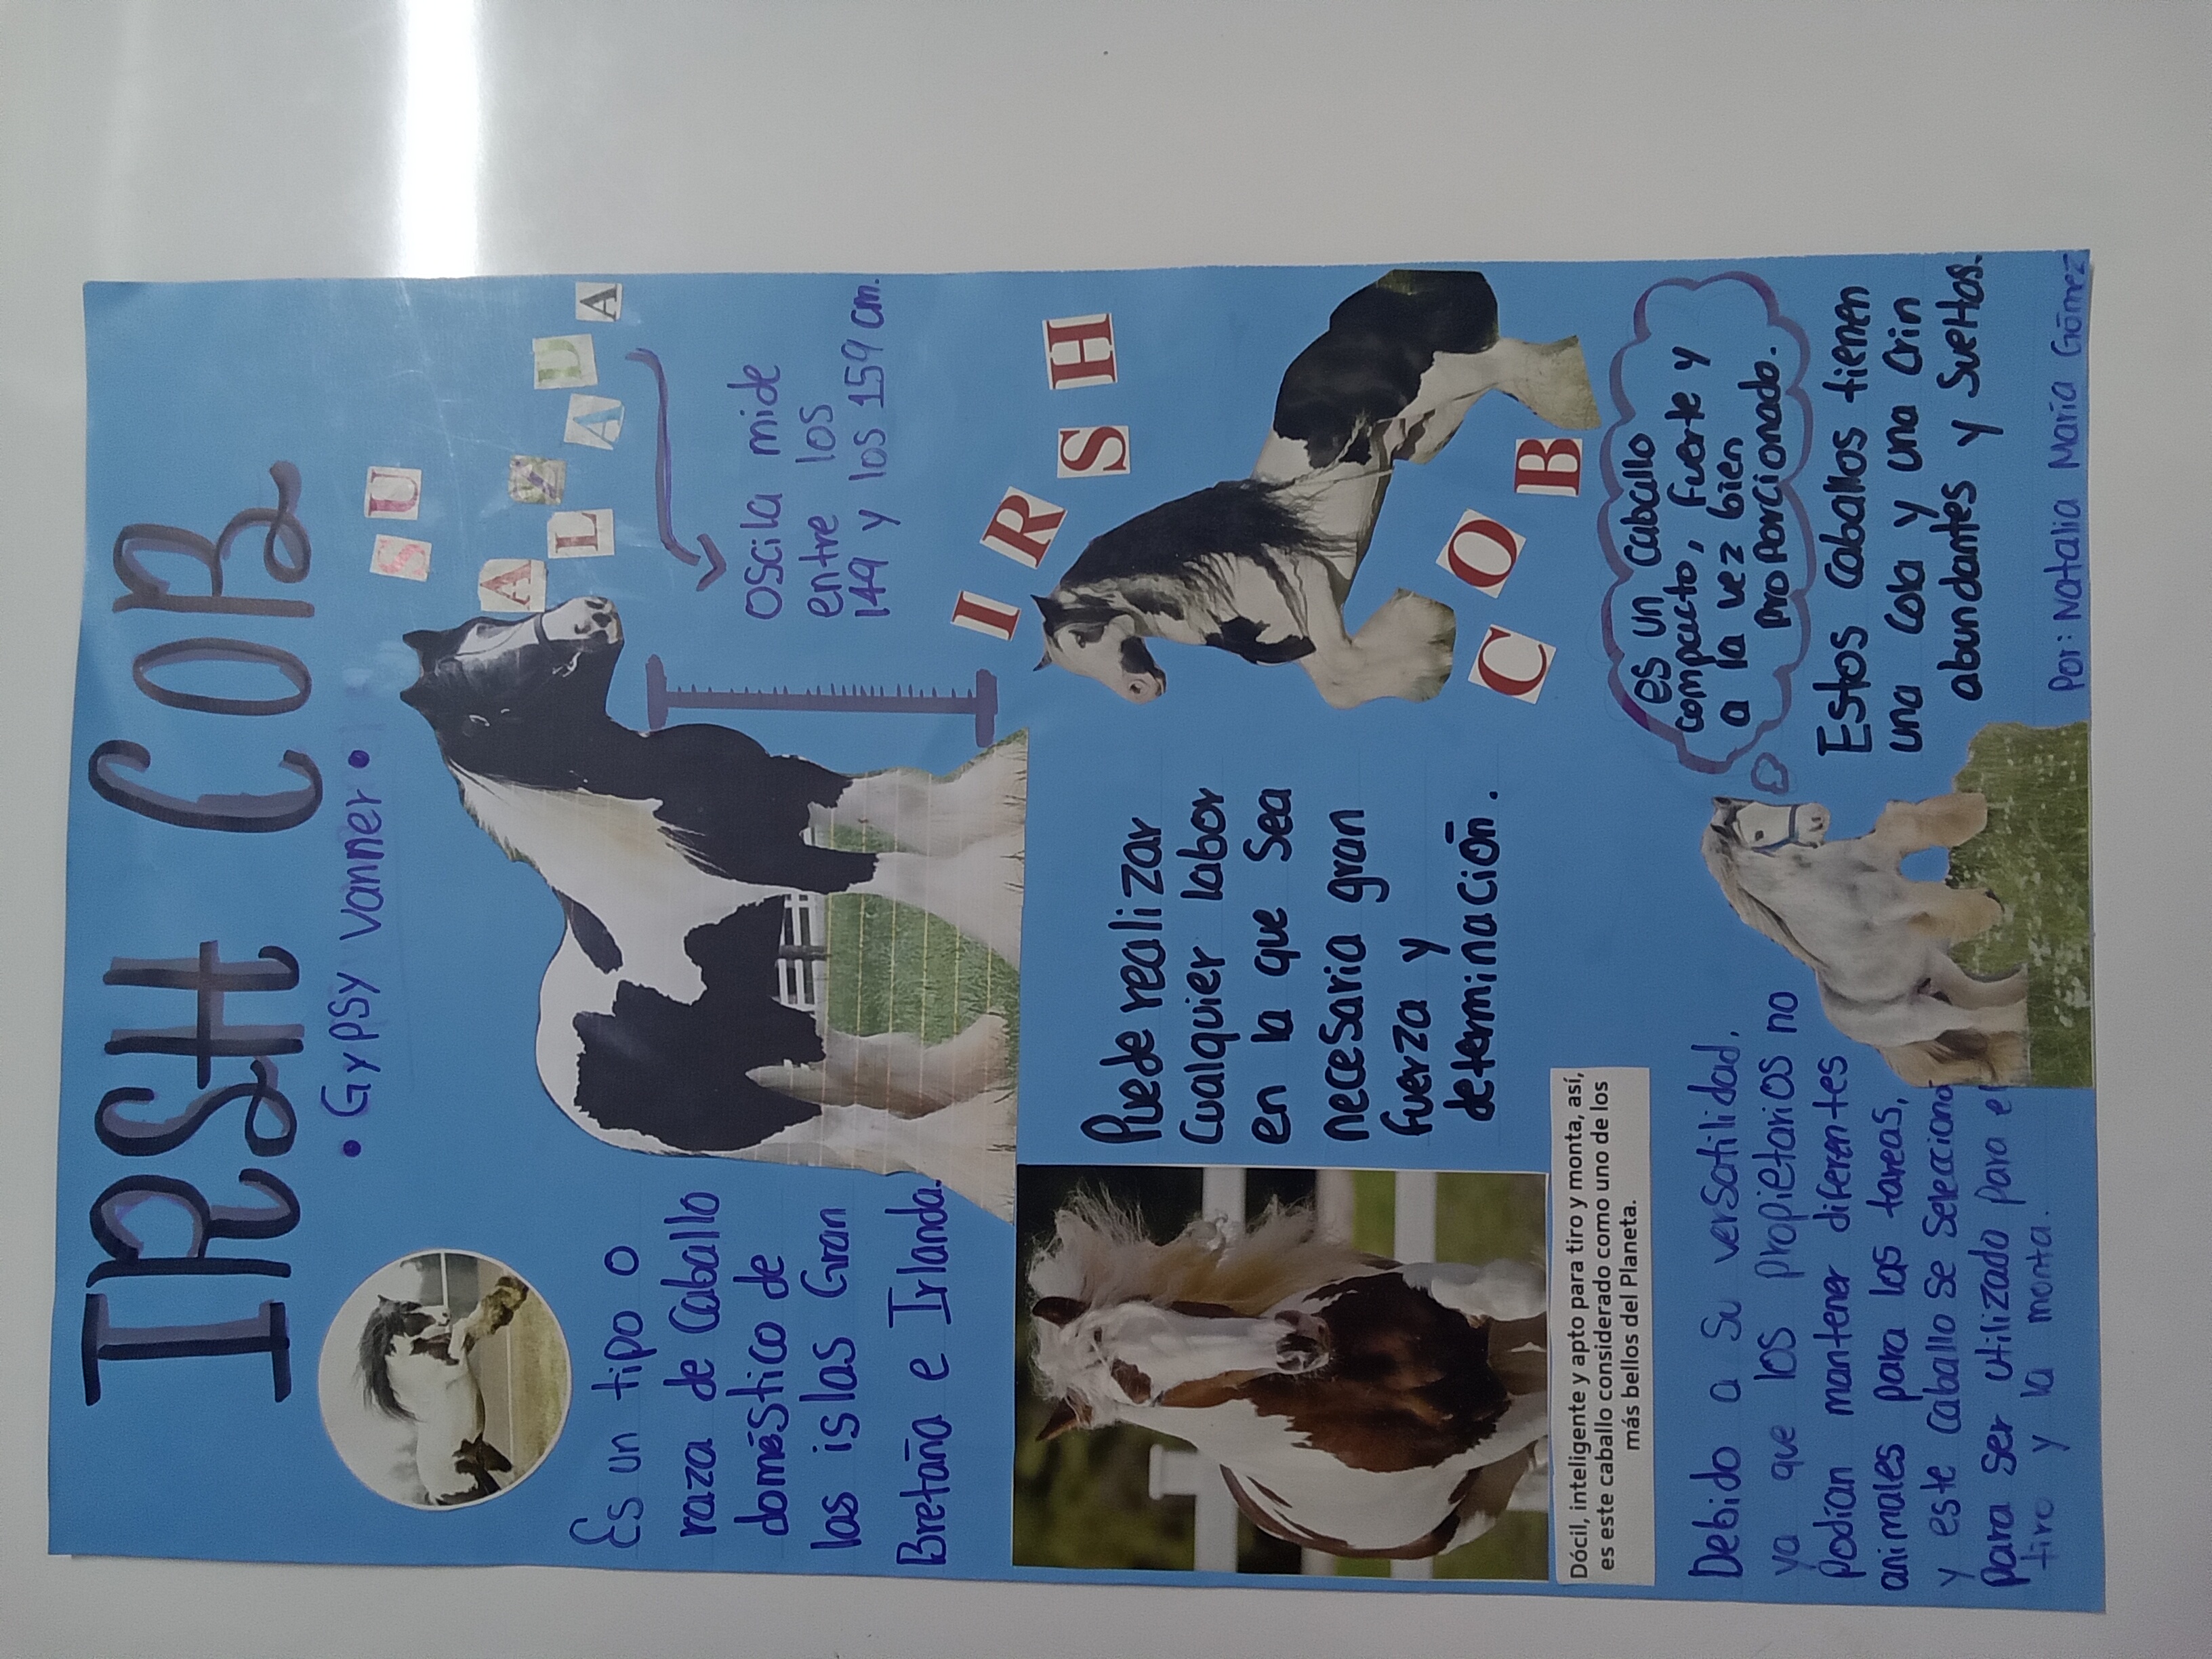 IRSH COB
• Gypsy Vanner •
SU
ALZADA
Oscila mide
entre los
149 y los 159 cm.
Es un tipo o
raza de Caballo
doméstico de
las islas Gran
Bretaña e Irlanda.
IRSH
COB
Puede realizar
Cualquier labor
en la que Sea
necesaria gran
fuerza y
determinación.
Dócil, inteligente y apto para tiro y monta, así,
es este caballo considerado como uno de los
más bellos del Planeta.
es un Caballo
compacto, fuerte y
a la vez bien
proporcionado.
Estos caballos tienen
una cola y una crin
abundantes y sueltas.
Debido a su versatilidad,
ya que los propietarios no
podían mantener diferentes
animales para las tareas,
y este caballo se selecciono
para ser utilizado para el
tiro y la monta.
Por: Natalia María Gómez